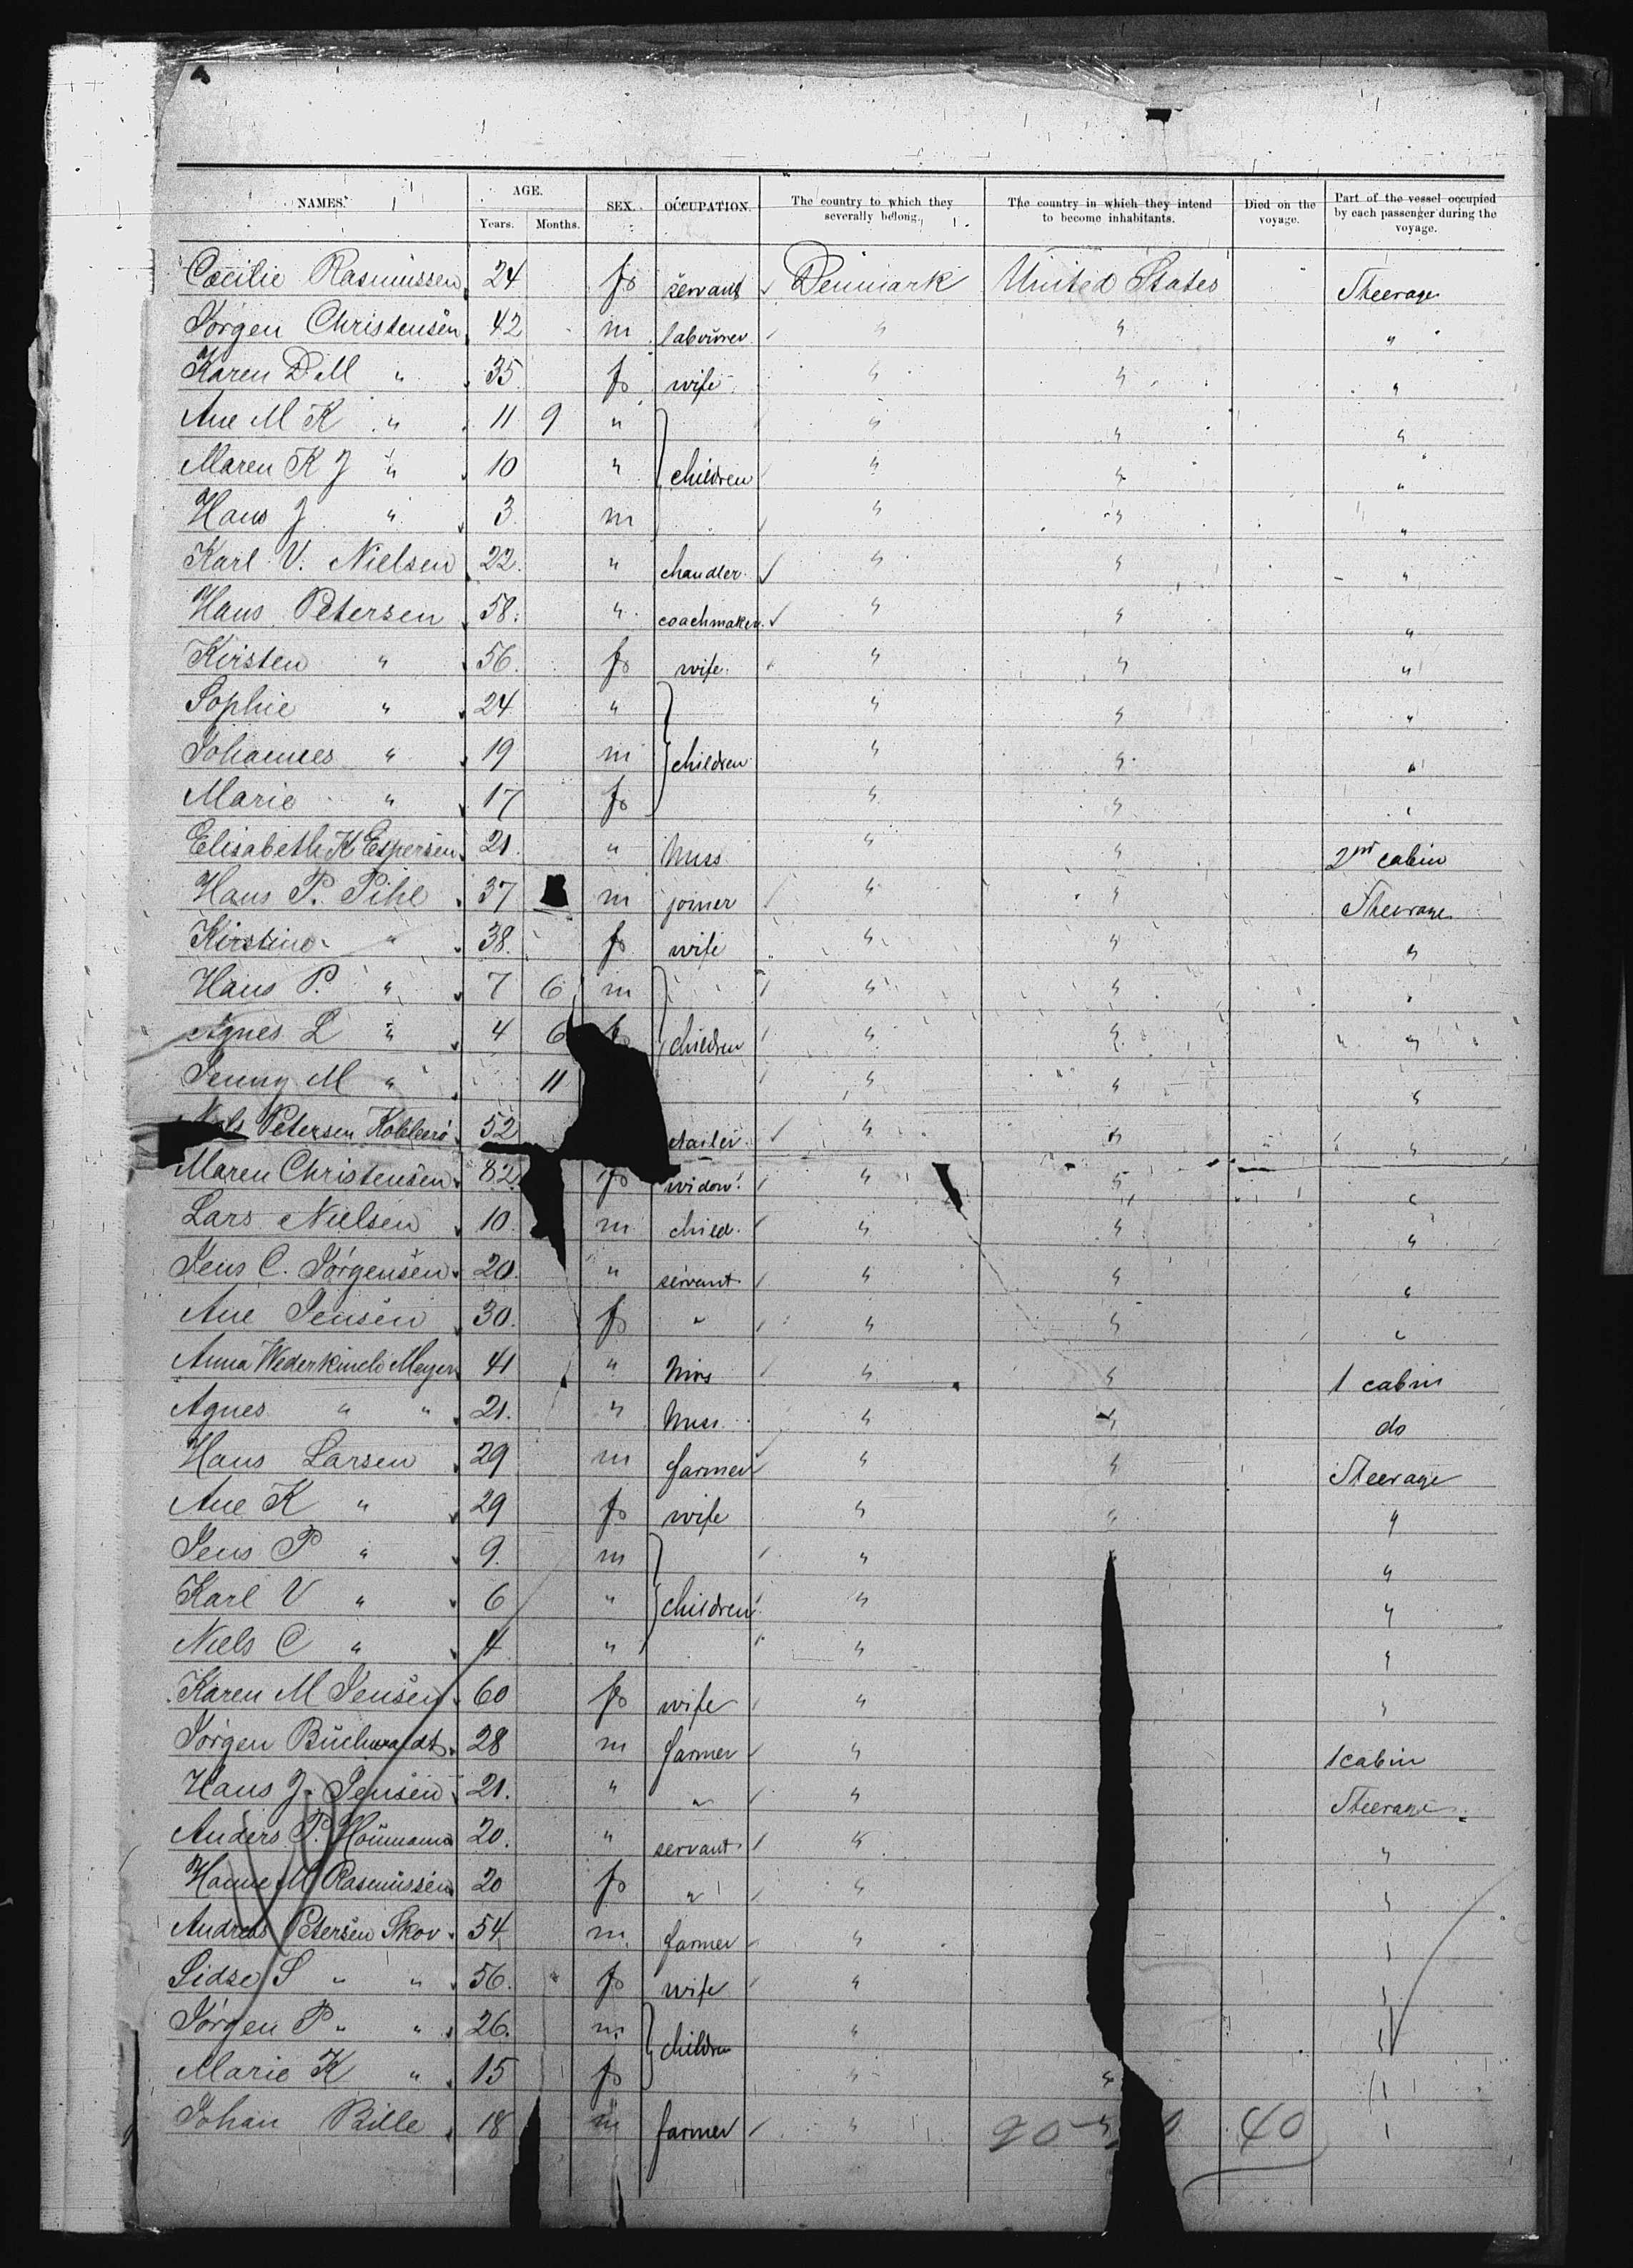 NAMES. AGE. SEX. OCCUPATION. The country to which they severally belong. The country in which they intend to become inhabitants. Died on the voyage. Part of the vessel occupied by each passenger during the voyage.
Years. Months.
Cecilie Rasmussen 24 f servant Denmark United States Steerage
Jörgen Christensen 42 m labourer " " "
Karen D M " 35 f wife " " "
Ane M K " 11 9 " " " "
Maren K J " 10 " children " " "
Hans J " 3 m " " "
Karl V. Nielsen 22 " chandler " " "
Hans Petersen 58 " coachmaker " " "
Kirsten " 56 f wife " " "
Sophie " 24 " " " "
Johannes " 19 m children " " "
Marie " 17 f " " "
Elisabeth K Espersen 21 " Miss " " 2nd cabin
Hans P. Pihl 37 m joiner " " Steerage
Kirstine " 38 f wife " " "
Hans P. " 7 6 m " " "
Agnes L " 4 6 f children " " "
Jenny M " 11 " " "
Petersen 52 " " "
Maren Christensen 82 f widow " " "
Lars Nielsen 10 m child " " "
Jens C. Jörgensen 20 " servant " " "
Ane Jensen 30 f " " " "
Anna Wederkinch Meyer 41 " Mrs " " 1 cabin
Agnes " " 21 " Miss " " do
Hans Larsen 29 m farmer " " Steerage
Ane K " 29 f wife " " "
Jens P " 9 m " "
Karl V " 6 " children " "
Niels C " 4 " " "
Karen M Jensen 60 f wife " "
Jörgen Buchwaldt 28 m farmer " 1 cabin
Hans J. Jensen 21 " " " Steerage
Anders P. 20 " servant " "
Hanne M Rasmussen 20 f " " "
Andreas Petersen Skov 54 m farmer " "
Sidse S " " 56 f wife " "
Jörgen P " " 26 m children " "
Marie K " 15 f " " "
Johan Bille 18 m farmer " " "
40